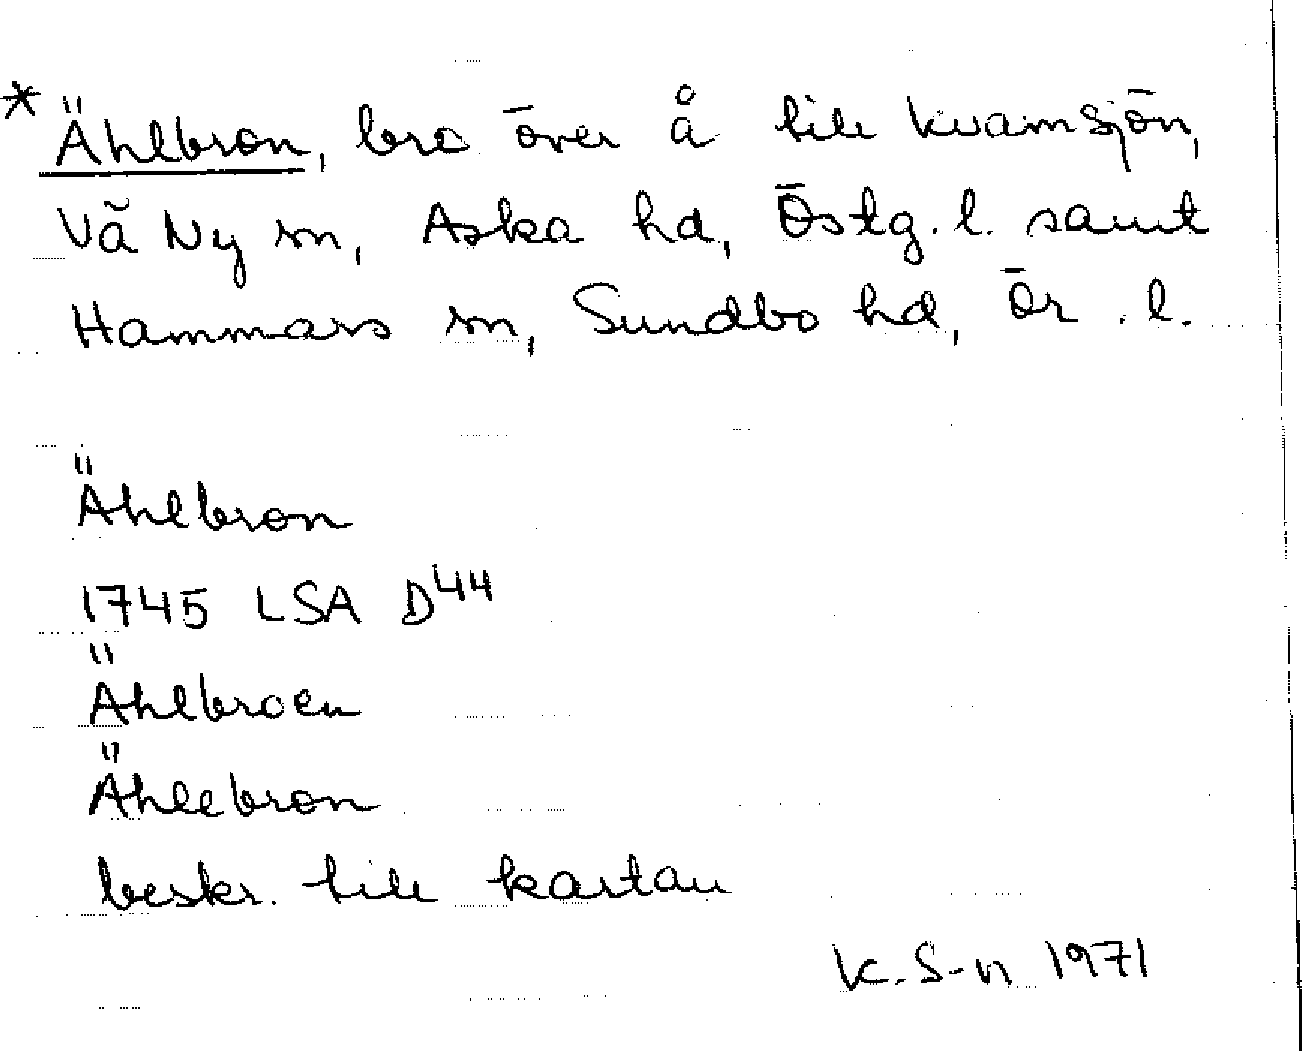 * Ählbron, bro över å till Kvamsjön,
Vä Ny sn, Aska hd, Östg. l. samt
Hammars sn, Sundbo hd, Ör. l.
Ählbron
1745 LSA D44
Ählbroen
Ählebron
beskr. till kartan
K. S-n 1971